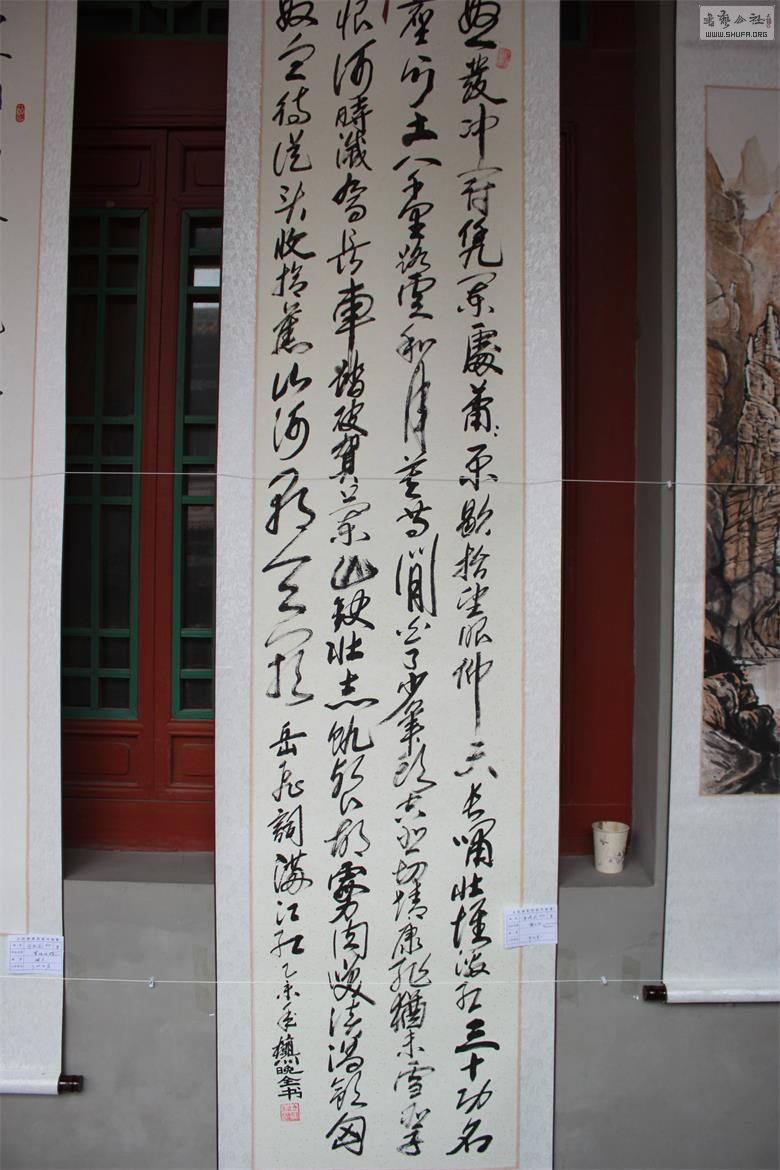 書藝公社
WWW.SHUFA.ORG
怒發冲冠凭阑處蕭〻雨歇抬望眼仰天长啸壮懷激烈三十功名
塵与土八千里路雲和月莫等闲白了少年頭空悲切靖康耻猶未雪臣子
恨何時滅驾长車踏破賀蘭山缺壮志飢餐胡虜肉笑谈渴飲匈
奴血待從头收拾舊山河朝天闕 岳飞詞滿江红 乙未 晚全书